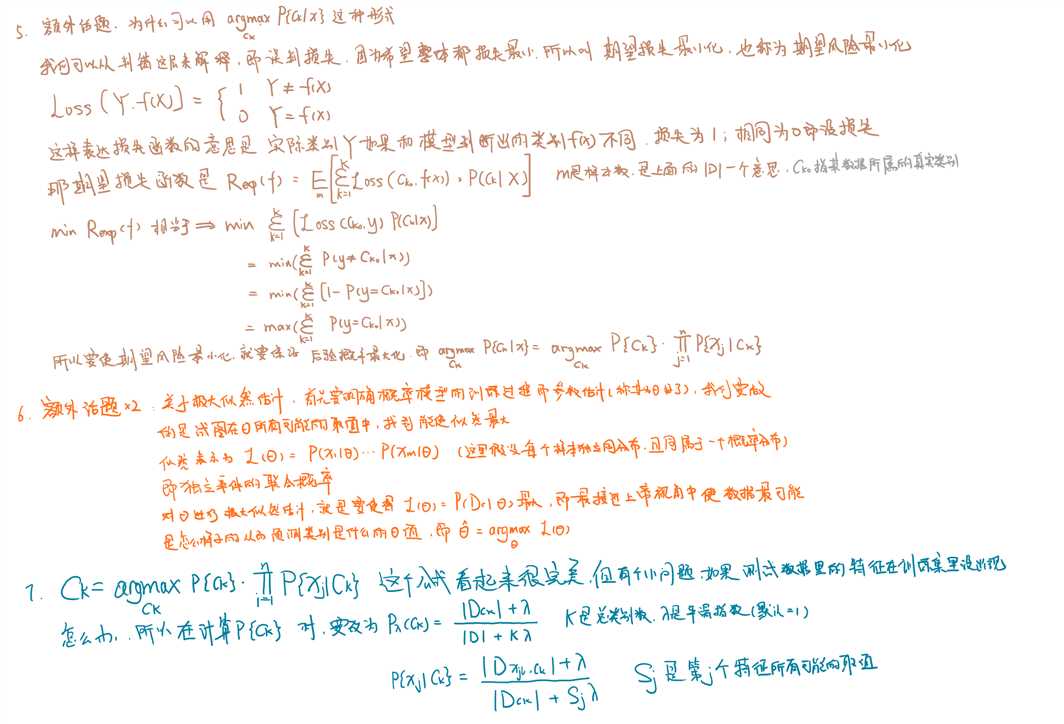 5. 额外话题. 为什么可以用 argmax_{Ck} P{Ck|x} 这种形式
我们可以从判错这层来解释, 即误判损失. 因为希望整体都损失最小. 所以叫 期望损失最小化, 也称为期望风险最小化
Loss(Y.f(X)) = { 1 Y≠f(X)
0 Y=f(X)
这样表达损失函数的意思是 实际类别Y如果和模型判断出的类别f(x)不同. 损失为1; 相同为0即没损失
那期望损失函数是 Rexp(f) = E_m[Σ_{k=1}^{K} Loss(Ck.f(X))·P(Ck|X)] m是样本数.是上面的|D|一个意思. Ck0指某数据所属的真实类别
min Rexp(f) 相当于 ⇒ min Σ_{k=1}^{K} [Loss(Ck0.y) P(Ck|x)]
= min(Σ_{k=1}^{K} P(y≠Ck0|x))
= min(Σ_{k=1}^{K} [1-P(y=Ck0|x)])
= max(Σ_{k=1}^{K} P(y=Ck0|x))
所以要使期望风险最小化. 就要使得 后验概率最大化. 即 argmax_{Ck} P{Ck|x} = argmax_{Ck} P{Ck}·∏_{j=1}^{n} P{xj|Ck}
6. 额外话题×2. 关于极大似然估计, 首先要明确概率模型的训练过程即参数估计(称其为θ好了), 我们要做
的是 试图在θ所有可能的取值中, 找到能使似然最大
似然表示为 L(θ) = P(x1|θ)…P(xm|θ) (这里假设每个样本独立同分布. 且同属于一个概率分布)
即独立事件的联合概率
对θ进行极大似然估计, 就是要使得 L(θ)=P(Dc|θ)最大, 即最接近上帝视角中使数据最可能
是怎么样子的从而预测类别是什么的θ值, 即 θ̂ = argmax_θ L(θ)
7. Ck = argmax_{Ck} P{Ck}·∏_{i=1}^{n} P{xj|Ck} 这个公式看起来很完美, 但有个小问题. 如果测试数据里的特征在训练集里没出现
怎么办.. 所以在计算P{Ck} 时, 要改为 Pλ(Ck) = (|Dck|+λ)/(|D|+Kλ) K是总类别数, λ是平滑指数(默认=1)
P{xj|Ck} = (|Dxji.ck|+λ)/(|Dck|+Sjλ) Sj是第j个特征所有可能的取值